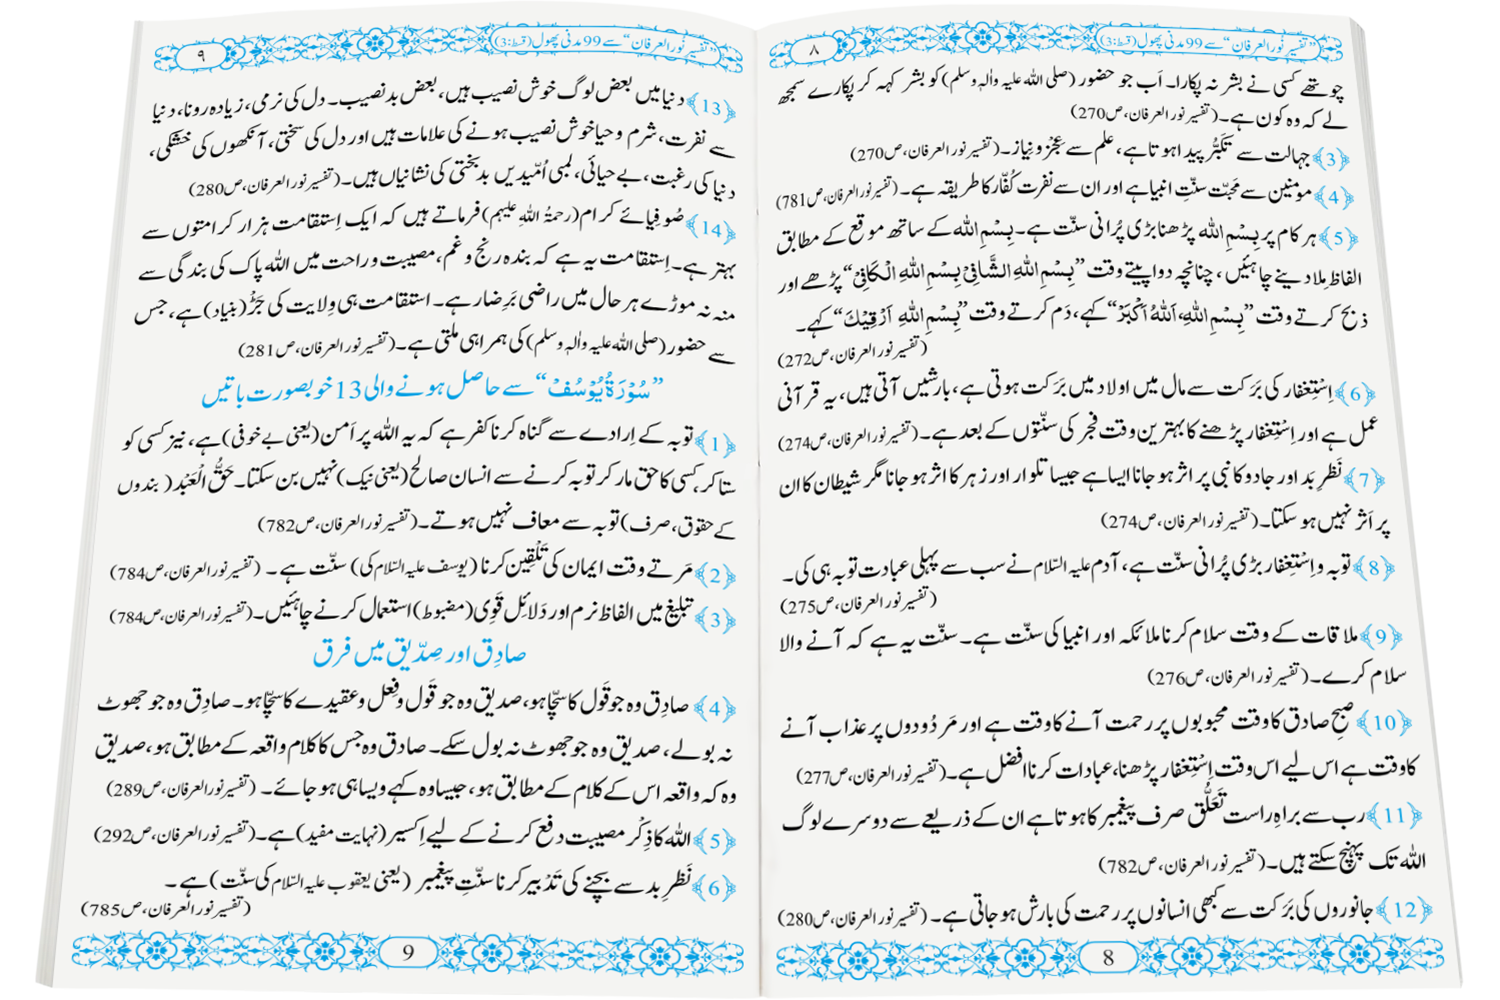 ”تفسیر نور العرفان“ سے 99 مدنی پھول (قسط:3)
۸
چوتھے کسی نے بشر نہ پکارا۔ اَب جو حضور (صلی اللہ علیہ واٰلہٖ وسلم) کو بشر کہہ کر پکارے سمجھ
لے کہ وہ کون ہے۔ (تفسیر نور العرفان، ص270)
﴿3﴾ جہالت سے تکبُّر پیدا ہوتا ہے، علم سے عِجْز و نِیاز۔ (تفسیر نور العرفان، ص270)
﴿4﴾ مومنین سے مَحبّت سنّتِ انبیا ہے اور ان سے نفرت کُفّار کا طریقہ ہے۔ (تفسیر نور العرفان، ص781)
﴿5﴾ ہر کام پر بِسْمِ اللہ پڑھنا بڑی پُرانی سنّت ہے۔ بِسْمِ اللہ کے ساتھ موقع کے مطابق
الفاظ مِلا دینے چاہئیں، چنانچہ دوا پیتے وقت ”بِسْمِ اللہِ الشَّافِیْ بِسْمِ اللہِ الْکَافِیْ“ پڑھے اور
ذبح کرتے وقت ”بِسْمِ اللہِ، اَللہُ اَکْبَرْ“ کہے، دَم کرتے وقت ”بِسْمِ اللہِ اَرْقِیْكَ“ کہے۔
(تفسیر نور العرفان، ص272)
﴿6﴾ اِسْتِغفار کی بَرَکت سے مال میں اولاد میں بَرَکت ہوتی ہے، بارشیں آتی ہیں، یہ قرآنی
عمل ہے اور اِسْتِغفار پڑھنے کا بہترین وقت فجر کی سنّتوں کے بعد ہے۔ (تفسیر نور العرفان، ص274)
﴿7﴾ نَظَرِ بَد اور جادو کا نبی پر اثر ہو جانا ایسا ہے جیسا تلوار اور زہر کا اثر ہو جانا مگر شیطان کا ان
پر اَثر نہیں ہو سکتا۔ (تفسیر نور العرفان، ص274)
﴿8﴾ توبہ و اِسْتِغفار بڑی پُرانی سنّت ہے، آدم علیہ السّلام نے سب سے پہلی عبادت توبہ ہی کی۔
(تفسیر نور العرفان، ص275)
﴿9﴾ ملاقات کے وقت سلام کرنا ملائکہ اور انبیا کی سنّت ہے۔ سنّت یہ ہے کہ آنے والا
سلام کرے۔ (تفسیر نور العرفان، ص276)
﴿10﴾ صبحِ صادق کا وقت محبوبوں پر رحمت آنے کا وقت ہے اور مَر دُودوں پر عذاب آنے
کا وقت ہے اس لیے اس وقت اِسْتِغفار پڑھنا، عبادات کرنا افضل ہے۔ (تفسیر نور العرفان، ص277)
﴿11﴾ رب سے براہِ راست تَعَلُّق صرف پیغمبر کا ہوتا ہے ان کے ذریعے سے دوسرے لوگ
اللہ تک پہنچ سکتے ہیں۔ (تفسیر نور العرفان، ص782)
﴿12﴾ جانوروں کی بَرَکت سے کبھی انسانوں پر رحمت کی بارش ہو جاتی ہے۔ (تفسیر نور العرفان، ص280)
8
”تفسیر نور العرفان“ سے 99 مدنی پھول (قسط:3)
۹
﴿13﴾ دنیا میں بعض لوگ خوش نصیب ہیں، بعض بد نصیب۔ دل کی نرمی، زیادہ رونا، دنیا
سے نفرت، شرم و حیا خوش نصیب ہونے کی علامات ہیں اور دل کی سختی، آنکھوں کی خشکی،
دنیا کی رغبت، بے حیائی، لمبی اُمّیدیں بدبختی کی نشانیاں ہیں۔ (تفسیر نور العرفان، ص280)
﴿14﴾ صُوفیائے کرام (رحمۃُ اللہِ علیہم) فرماتے ہیں کہ ایک اِستقامت ہزار کرامتوں سے
بہتر ہے۔ اِستقامت یہ ہے کہ بندہ رنج و غم، مصیبت و راحت میں اللہ پاک کی بندگی سے
منہ نہ موڑے ہر حال میں راضی بَرِضا رہے۔ استقامت ہی وِلایت کی جَڑ (بنیاد) ہے، جس
سے حضور (صلی اللہ علیہ واٰلہٖ وسلم) کی ہمراہی ملتی ہے۔ (تفسیر نور العرفان، ص281)
”سُوْرَۃُ یُوْسُف“ سے حاصل ہونے والی 13 خوبصورت باتیں
﴿1﴾ توبہ کے اِرادے سے گناہ کرنا کفر ہے کہ یہ اللہ پر اَمن (یعنی بے خوفی) ہے، نیز کسی کو
ستا کر، کسی کا حق مار کر توبہ کرنے سے انسان صالح (یعنی نیک) نہیں بن سکتا۔ حَقُّ الْعَبْد (بندوں
کے حقوق، صرف) توبہ سے معاف نہیں ہوتے۔ (تفسیر نور العرفان، ص782)
﴿2﴾ مَرتے وقت ایمان کی تَلْقِین کرنا (یوسف علیہ السّلام کی) سنّت ہے۔ (تفسیر نور العرفان، ص784)
﴿3﴾ تبلیغ میں الفاظ نرم اور دَلائِل قَوِی (مضبوط) استعمال کرنے چاہئیں۔ (تفسیر نور العرفان، ص784)
صادِق اور صِدّیق میں فرق
﴿4﴾ صادِق وہ جو قَول کا سچّا ہو، صدیق وہ جو قَول و فِعل و عقیدے کا سچّا ہو۔ صادِق وہ جو جھوٹ
نہ بولے، صدیق وہ جو جھوٹ نہ بول سکے۔ صادق وہ جس کا کلام واقعہ کے مطابق ہو، صدیق
وہ کہ واقعہ اس کے کلام کے مطابق ہو، جیسا وہ کہے ویسا ہی ہو جائے۔ (تفسیر نور العرفان، ص289)
﴿5﴾ اللہ کا ذِکْر مصیبت دفع کرنے کے لیے اِکسیر (نہایت مفید) ہے۔ (تفسیر نور العرفان، ص292)
﴿6﴾ نَظَرِ بد سے بچنے کی تَدْبیر کرنا سنّتِ پیغمبر (یعنی یعقوب علیہ السّلام کی سنّت) ہے۔
(تفسیر نور العرفان، ص785)
9